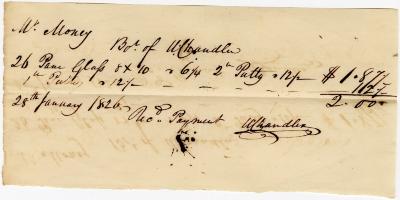 Mr. Money
Bot. of W Chandler
26 Pane Glass 8 x 10 6¼ 2 lb Putty 12½ $ 1.87½
12½
28th January 1826 2.00
Recd. Payment W Chandler